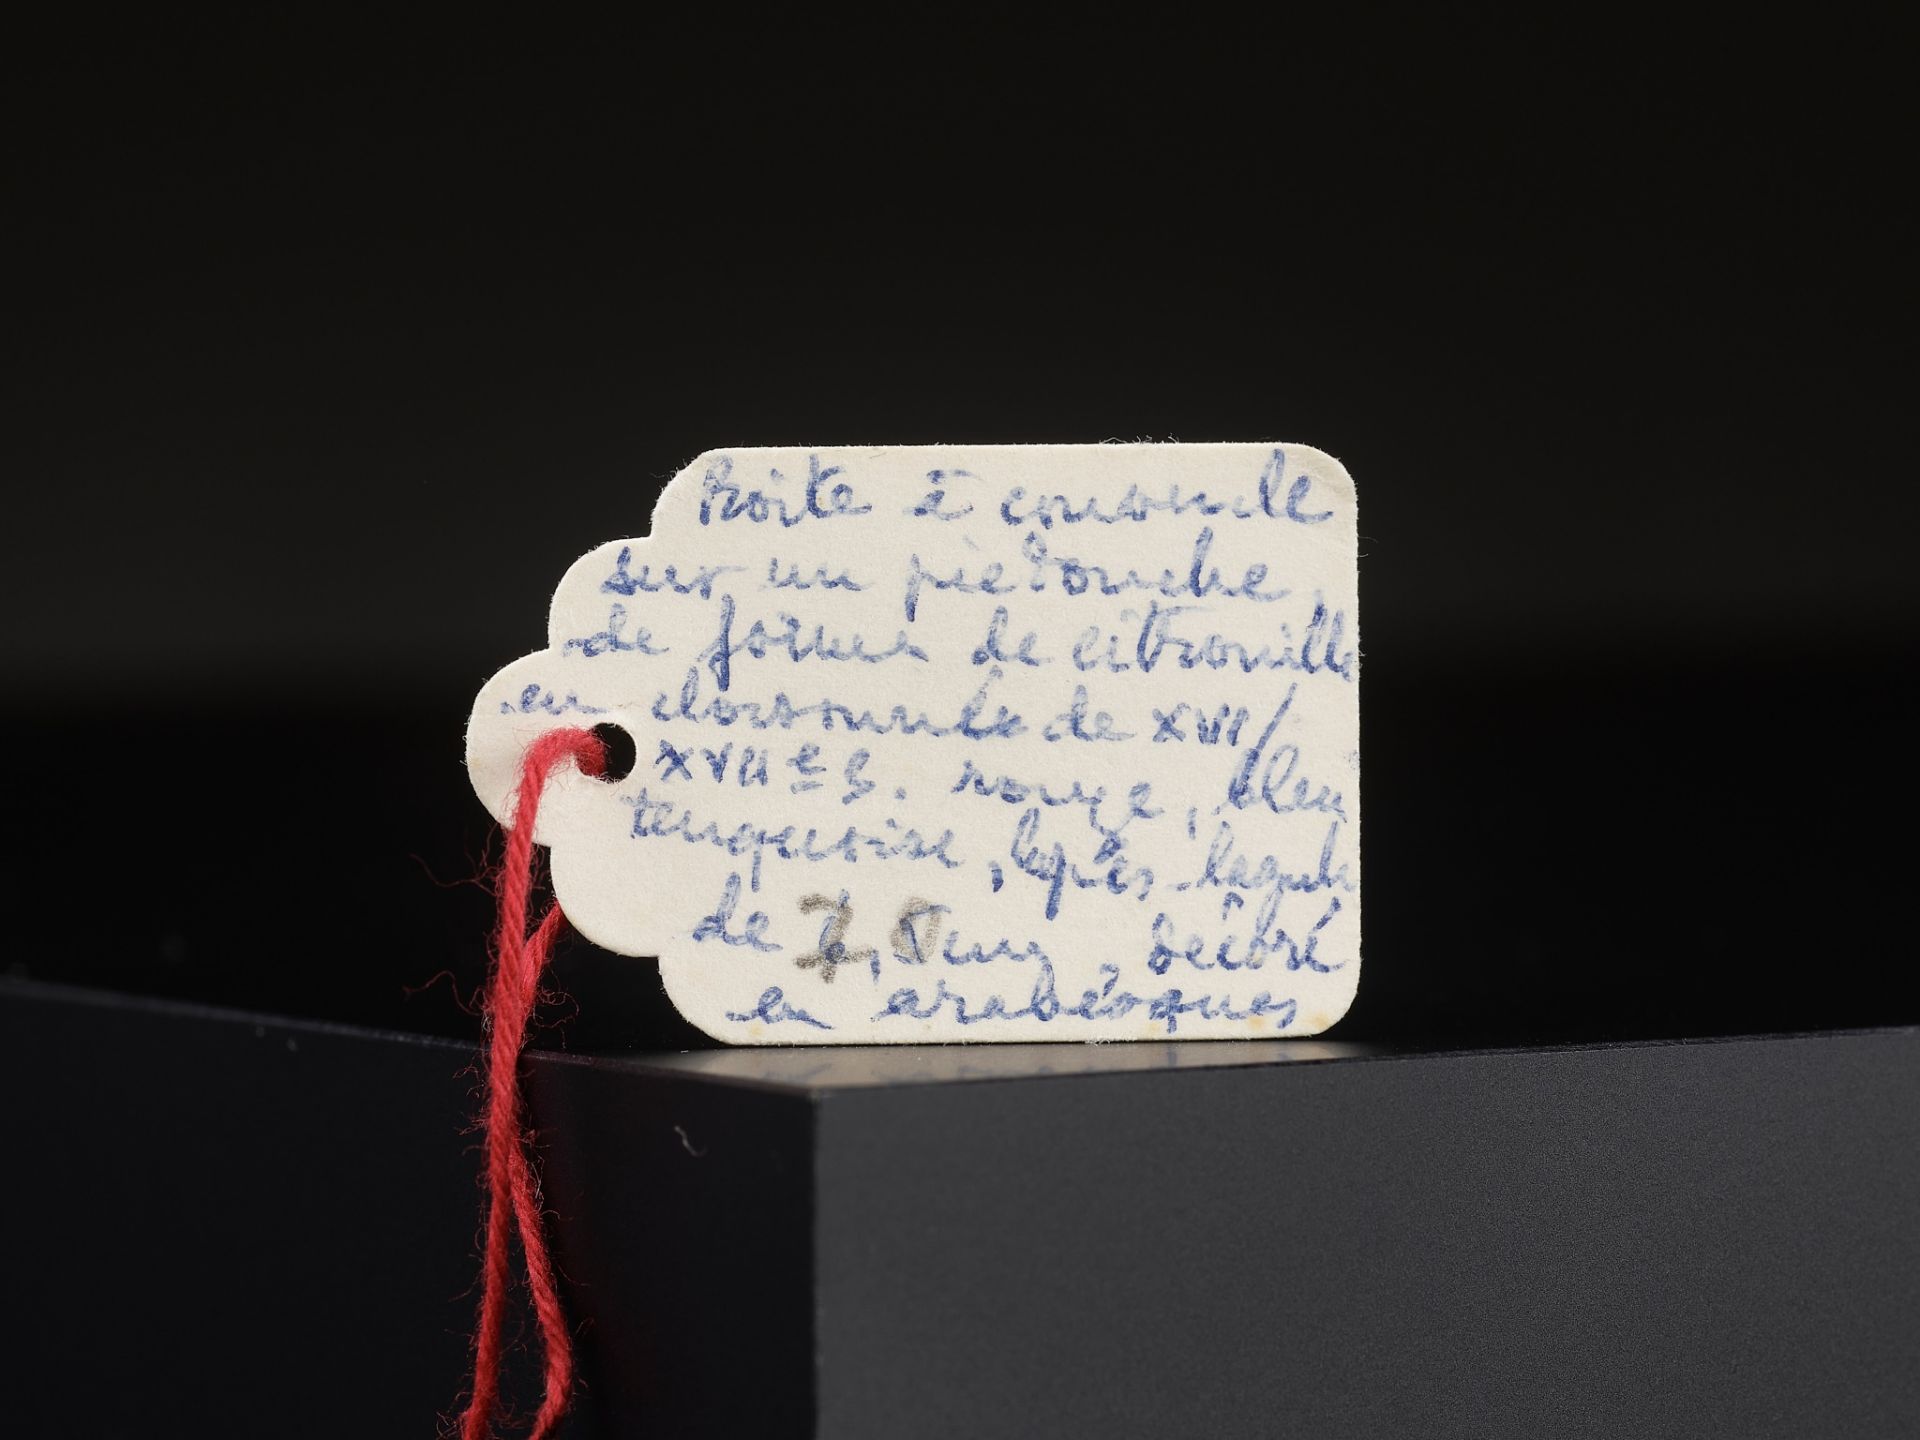 Boite à couvercle
sur un piedouche
de forme de citrouille
en cloisonné de XVI/
XVIIe s. rouge, bleu
turquoise, lapis-lazuli
de 7, décoré
en arabesques